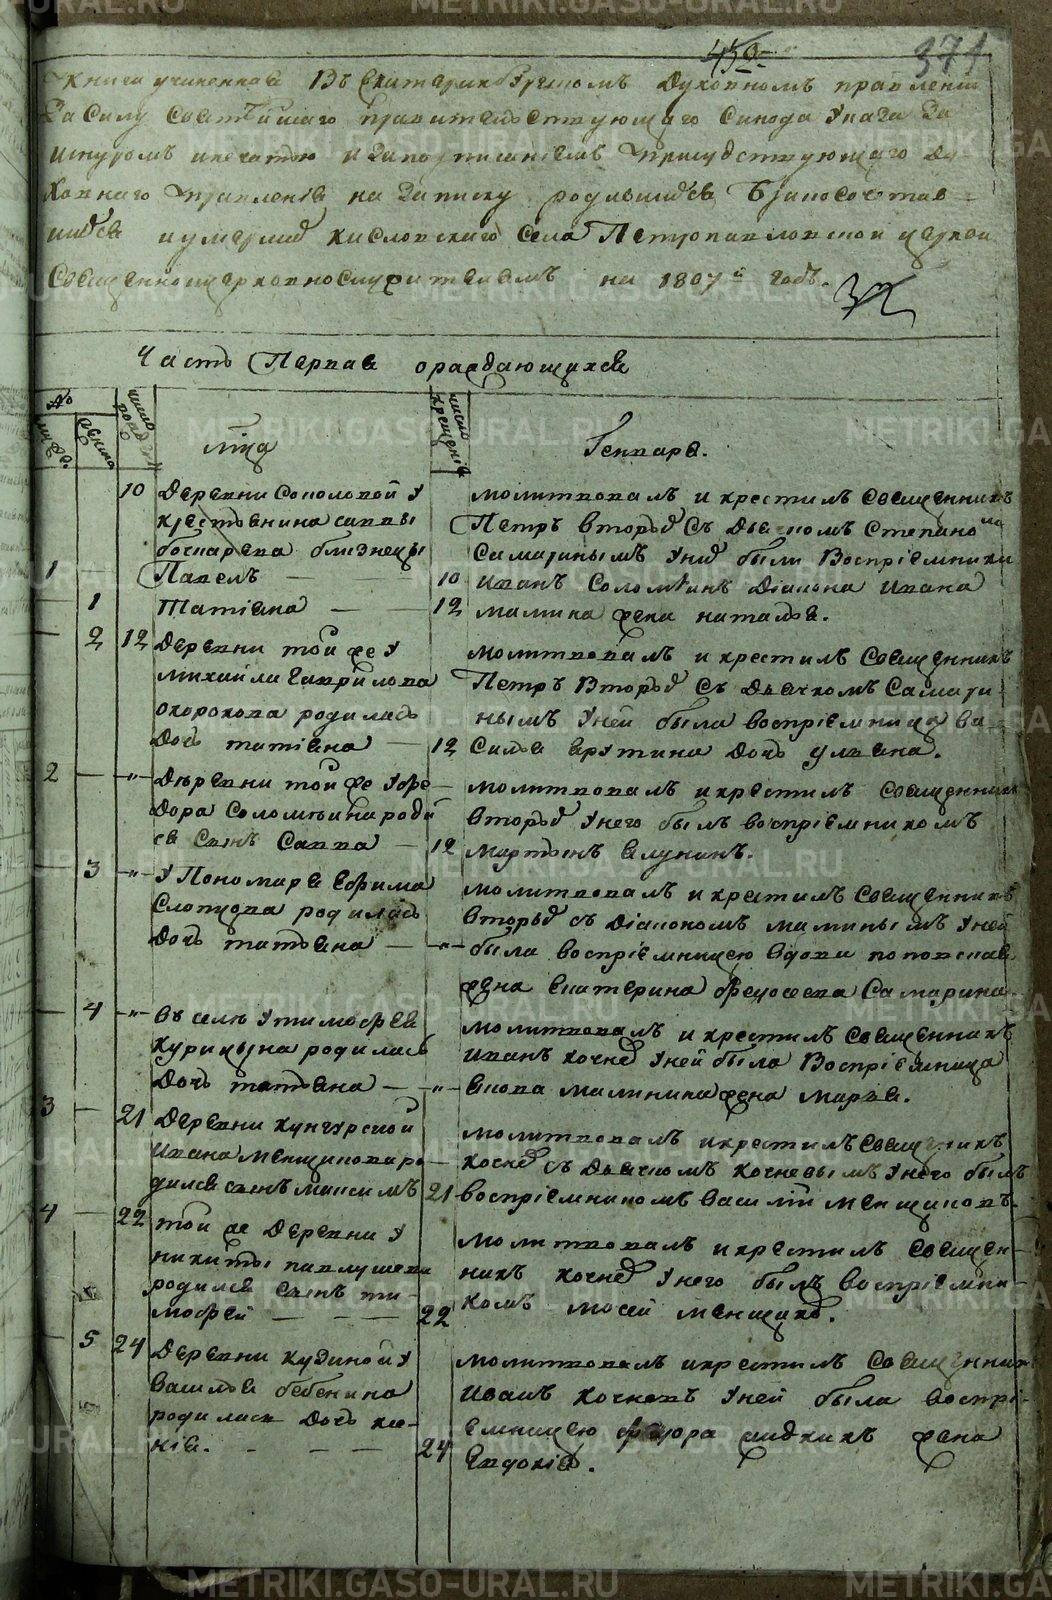 450
371
Книга учиненная Въ Екатеринбургскомъ Духовномъ правленіи
За Силу Святейшаго правительствующаго Синода Указа За
шнуромъ ипечатью иЗаподписаніемъ присудствующаго Ду
ховнаго правленія на Записку родившихся Бракосочетав
шихся иумершихъ Кисловскаго Села Петропавловской церкви
Священноцерковнослужителямъ на 1807й годъ.
Часть Первая ораждающихся
№
число рожд
число крещенія
лица
Генваря.
10 Деревни Соколовой У
крестьянина саввы
бочкарева близнецы
1 Павелъ
1 Татіана
молитвовалъ и крестилъ Священникъ
Петръ Второвъ Съ Дьячкомъ Степаномъ
Самаринымъ Унихъ были Воспріемники
10 Иванъ Соломеинъ Діакона Ивана
12 мамина жена наталья.
2 12 Деревни той же У
михайла Гаврилова
окорокова родилась
Дочь татіана
молитвовалъ и крестилъ Священникъ
Петръ Второвъ Съ Дьячкомъ Самари
нымъ Уней была воспріемница Ва
12 силья Дочь ульяна.
2 Деревни той же Уфе
дора Соломеина роди
ся Сынъ Савва
молитвовалъ икрестилъ Священникъ
Второвъ Унего былъ воспріемникомъ
12 мартынъ
3 У Пономаря Ефима
Слопцова родилась
Дочь татьяна
молитвовалъ и крестилъ Священникъ
Второвъ съ Діакономъ маминымъ Уней
была воспріемницею вдова
жена Екатерина Самарина
4 въ селе Утимофея
Курицына родилась
Дочь татьяна
молитвовалъ и крестилъ Священникъ
Иванъ кочневъ Уней была Воспріемница
малинина жена марья.
3 21 Деревни кунгурской
Ивана менщикова ро
дился сынъ максимъ
молитвовалъ икрестилъ Священникъ
кочневъ съ Дьячкомъ Кочневымъ Унего былъ
21 воспріемникомъ василій менщиковъ.
4 22 той же Деревни У
никиты павлушева
родился Сынъ ти
мофей
молитвовалъ икрестилъ Священ
никъ кочневъ Унего былъ воспріемни
22 комъ менщиковъ.
5 24 Деревни кудиной У
василья бебенина
родилась Дочь ксе
нія.
молитвовалъ икрестилъ Священникъ
Иванъ кочневъ Уней была воспрі
емницею федора жена
24 Евдокія.
METRIKI.GASO-URAL.RU